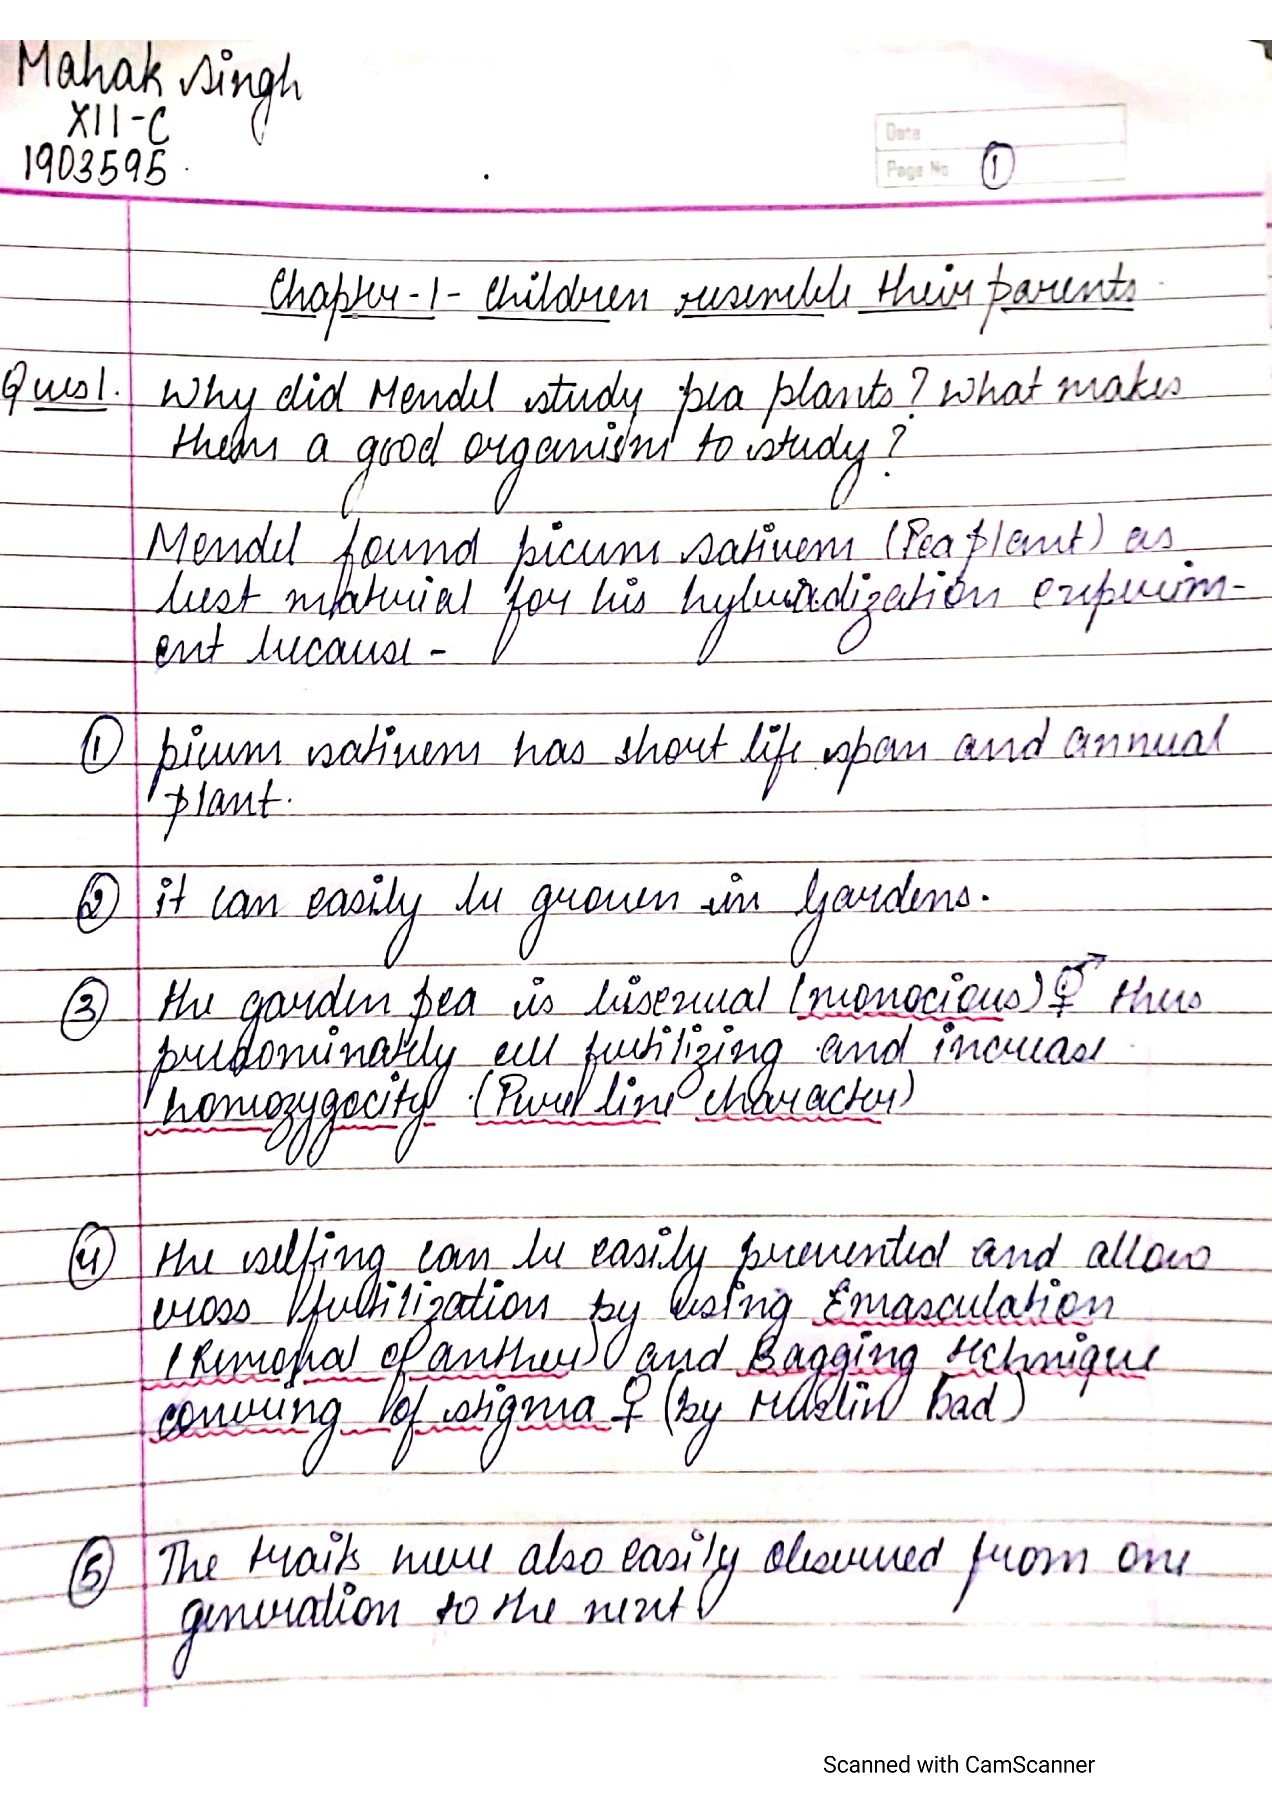 Mahak Singh
XII-C
1903595
Date
Page No 1
Chapter-1- Children resemble their parents
Ques1. Why did Mendel study pea plants? What makes
them a good organism to study?
Mendel found picum sativem (Pea plant) as
best material for his hybridization experim-
ent because -
1 picum sativem has short life span and annual
plant.
2 it can easily be grown in gardens.
3 the garden pea is bisexual (monocious) ⚥ thus
predominately fertilizing and increase
homozygocity (Pure line character)
4 the selfing can be easily prevented and allow
cross fertilization by using Emasculation
(Removal of anther) and Bagging technique
convering of stigma ♀ (by Muslin bad)
5 The traits were also easily observed from one
generation to the next
Scanned with CamScanner